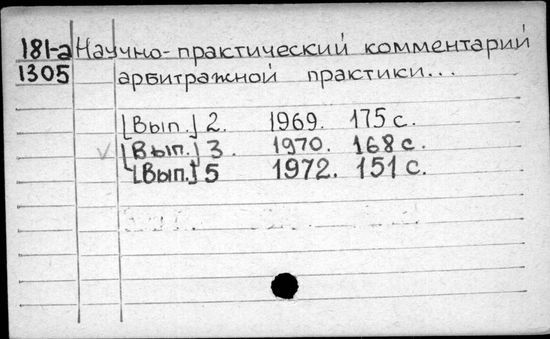 181-а Научно-практический комментарий
1305 арбитражной практики...
[Вып.] 2. 1969. 175 с.
[Вып.] 3. 1970. 168 с.
[Вып.] 5 1972. 151 с.